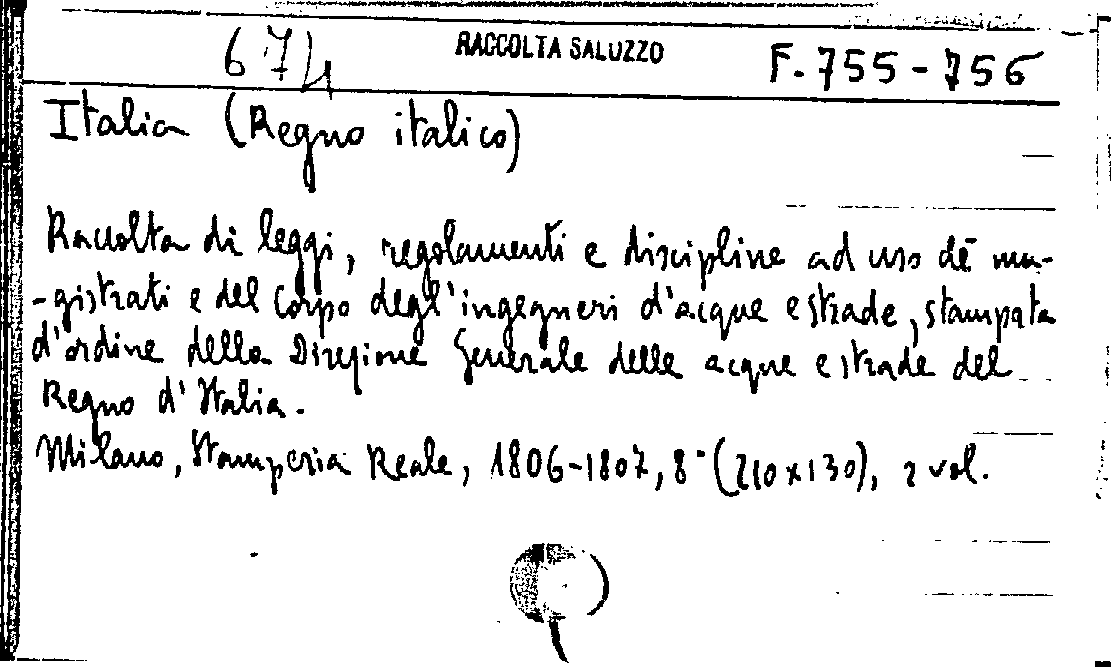 674 RACCOLTA SALUZZO F. 755-756
Italia (Regno italico)
Raccolta di leggi, regolamenti e discipline ad uso de' ma-
-gistrati e del Corpo degl'ingegneri d'acque e strade, stampata
d'ordine della Direzione Generale delle acque e strade del
Regno d'Italia.
Milano, Stamperia Reale, 1806-1807, 8° (210x130), 2 vol.